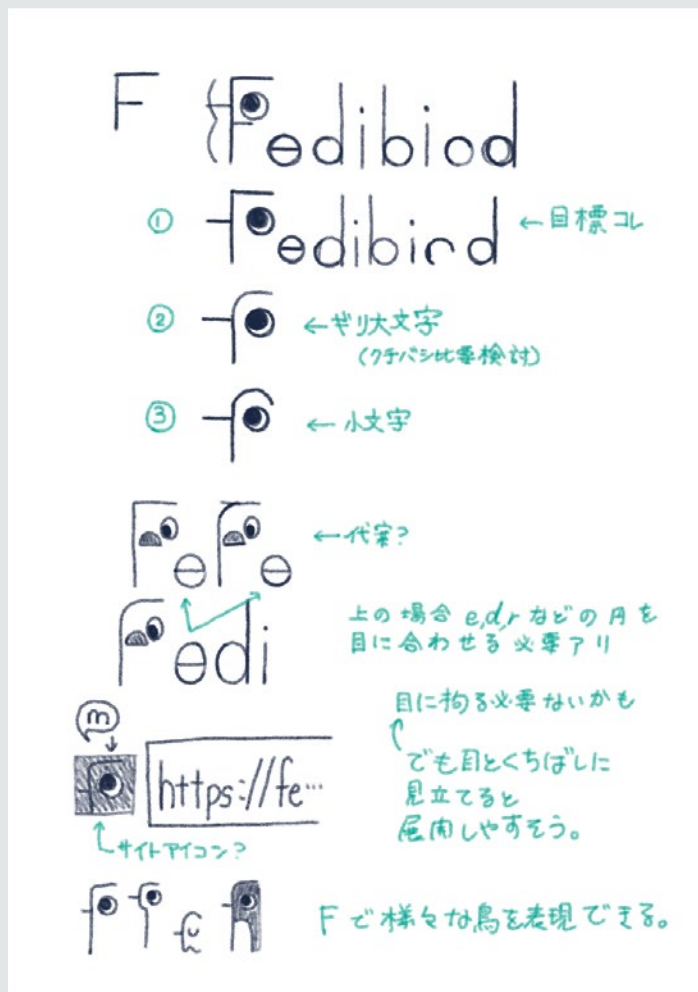 F Fedibiod
① Fedibird ←目標コレ
② ←ギリ大文字
(クチバシ比要検討)
③ ←小文字
Fe Fe ←代案?
Fedi
上の場合 e,d,r などの円を
目に合わせる必要アリ
目に拘る必要ないかも
でも目とくちばしに
見立てると
展開しやすそう。
m
https://fe…
サイトアイコン?
Fで様々な鳥を表現できる。